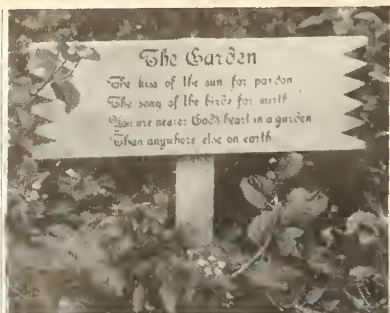 The Garden
The kiss of the sun for pardon
The song of the birds for mirth
You are nearer God's heart in a garden
Than anywhere else on earth